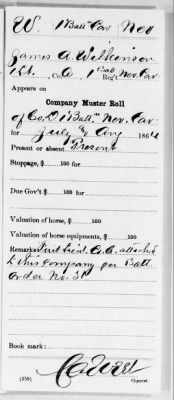 W. 1 Batt. Cav. Nev.
James A. Wilkinson
1 Lt., Co. A, 1 Batt. Reg't Nev. Cav.
Appears on
Company Muster Roll
of Co. D 1 Batt. Nev. Cav.
for July & Aug, 186
Present or absent Present
Stoppage, $ 100 for
Due Gov't $ 100 for
Valuation of horse, $ 100
Valuation of horse equipments, $ 100
Remarks: First Lieut. Co. A. attached
to this company per Batt.
Order No. 31
Book mark:
(358) Copyist.